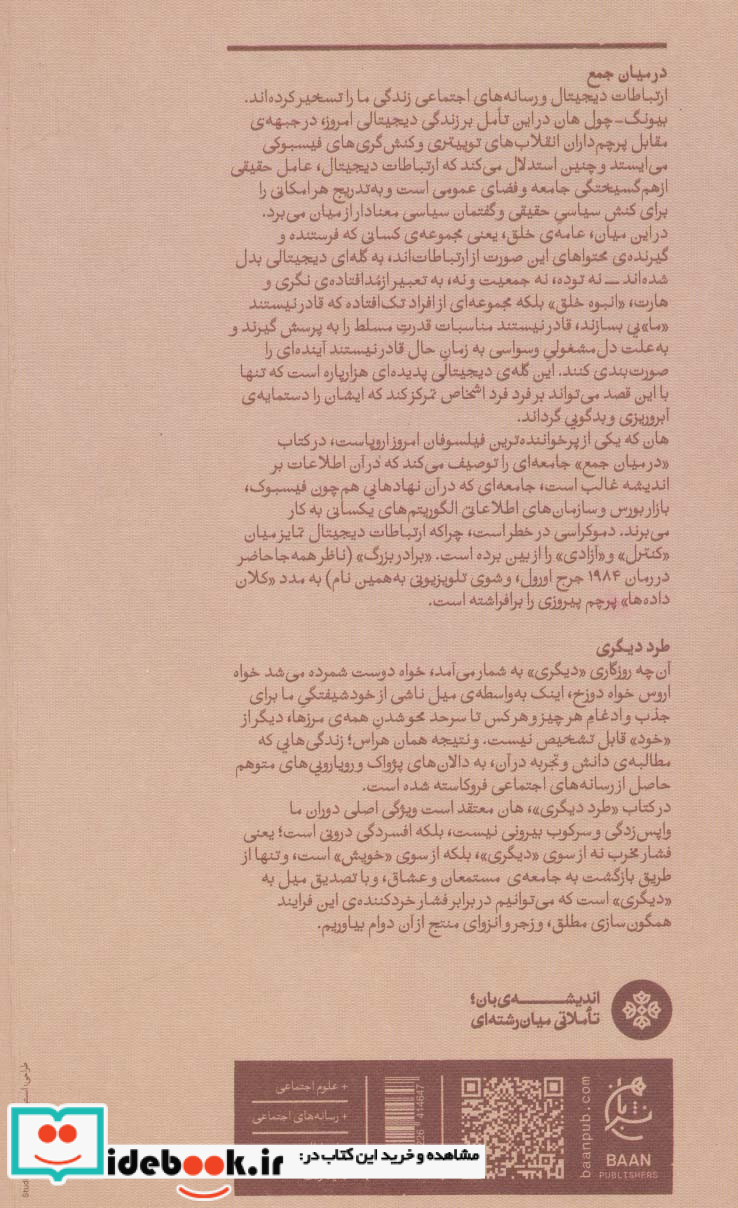 در میان جمع
ارتباطات دیجیتال و رسانه‌های اجتماعی زندگی ما را تسخیر کرده‌اند.
بیونگ-چول هان در این تأمل بر زندگی دیجیتالی امروز، در جبهه‌ی
مقابل پرچم‌داران انقلاب‌های توییتری و کنش‌گری‌های فیسبوکی
می‌ایستد و چنین استدلال می‌کند که ارتباطات دیجیتال، عامل حقیقی
ازهم‌گسیختگی جامعه و فضای عمومی است و به‌تدریج هر امکانی را
برای کنش سیاسیِ حقیقی و گفتمان سیاسی معنادار از میان می‌برد.
در این میان، عامه‌ی خلق، یعنی مجموعه‌ی کسانی که فرستنده و
گیرنده‌ی محتواهای این صورت از ارتباطات‌اند، به گله‌ای دیجیتالی بدل
شده‌اند ــ نه توده، نه جمعیت و نه، به تعبیر ازمُدافتاده‌ی نگری و
هارت، «انبوه خلق» بلکه مجموعه‌ای از افراد تک‌افتاده که قادر نیستند
«ما»یی بسازند، قادر نیستند مناسبات قدرتِ مسلط را به پرسش گیرند و
به علت دل‌مشغولیِ وسواسی به زمانِ حال قادر نیستند آینده‌ای را
صورت‌بندی کنند. این گله‌ی دیجیتالی پدیده‌ای هزارپاره است که تنها
با این قصد می‌تواند بر فرد فرد اشخاص تمرکز کند که ایشان را دستمایه‌ی
آبروریزی و بدگویی گرداند.
هان که یکی از پرخواننده‌ترین فیلسوفان امروز اروپاست، در کتاب
«در میان جمع» جامعه‌ای را توصیف می‌کند که در آن اطلاعات بر
اندیشه غالب است، جامعه‌ای که در آن نهادهایی هم‌چون فیسبوک،
بازار بورس و سازمان‌های اطلاعاتی الگوریتم‌های یکسانی به کار
می‌برند. دموکراسی در خطر است، چراکه ارتباطات دیجیتال تمایز میان
«کنترل» و «آزادی» را از بین برده است. «برادر بزرگ» (ناظر همه‌جاحاضر
در رمان ۱۹۸۴ جرج اورول، و شوی تلویزیونی به‌همین نام) به مدد «کلان
داده‌ها» پرچم پیروزی را برافراشته است.
طرد دیگری
آن‌چه روزگاری «دیگری» به شمار می‌آمد، خواه دوست شمرده می‌شد خواه
اروس خواه دوزخ، اینک به‌واسطه‌ی میل ناشی از خودشیفتگیِ ما برای
جذب و ادغامِ هر چیز و هر کس تا سرحد محو شدنِ همه‌ی مرزها، دیگر از
«خود» قابل تشخیص نیست. و نتیجه همان هراس؛ زندگی‌هایی که
مطالبه‌ی دانش و تجربه در آن، به دالان‌های پژواک و رویارویی‌های متوهم
حاصل از رسانه‌های اجتماعی فروکاسته شده است.
در کتاب «طرد دیگری»، هان معتقد است ویژگی اصلی دوران ما
واپس‌زدگی و سرکوب بیرونی نیست، بلکه افسردگی درونی است؛ یعنی
فشار مخرب نه از سوی «دیگری»، بلکه از سوی «خویش» است، و تنها از
طریق بازگشت به جامعه‌ی مستمعان و عشاق، و با تصدیق میل به
«دیگری» است که می‌توانیم در برابر فشار خردکننده‌ی این فرایند
همگون‌سازی مطلق، و زجر و انزوای منتج از آن دوام بیاوریم.
اندیشـــه‌ی بان؛
تأملاتی میان‌رشته‌ای
+ علوم اجتماعی
+ رسانه‌های اجتماعی
226 414647
baanpub.com
بان
BAAN
PUBLISHERS
طراحی:
Stud
مشاهده و خرید این کتاب در:
idebook.ir